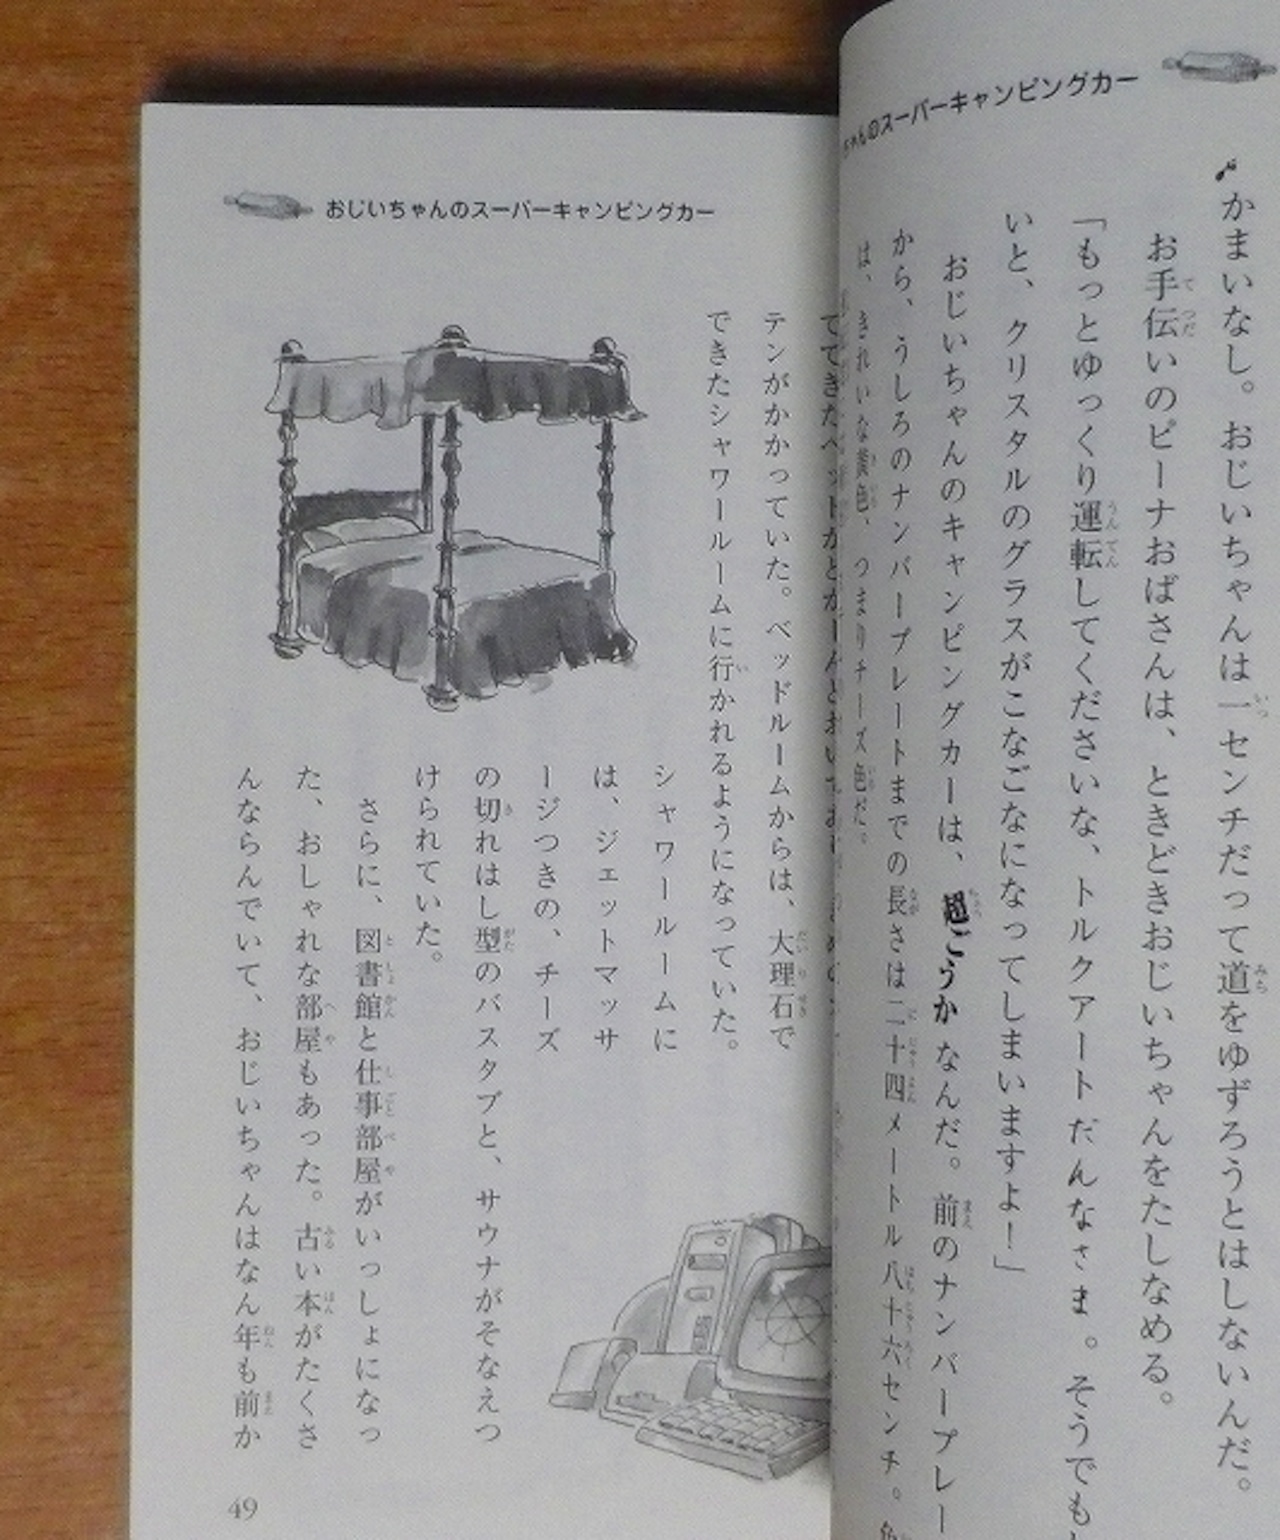 ちゃんのスーパーキャンピングカー
かまいなし。おじいちゃんは一センチだって道をゆずろうとはしないんだ。
お手伝いのピーナおばさんは、ときどきおじいちゃんをたしなめる。
「もっとゆっくり運転してくださいな、トルクアートだんなさま。そうでも
いと、クリスタルのグラスがこなごなになってしまいますよ！」
おじいちゃんのキャンピングカーは、超ごうかなんだ。前のナンバープレー
から、うしろのナンバープレートまでの長さは二十四メートル八十六センチ。色
は、きれいな黄色、つまりチーズ色だ。
おじいちゃんのスーパーキャンピングカー
テンがかかっていた。ベッドルームからは、大理石で
できたシャワールームに行かれるようになっていた。
シャワールームに
は、ジェットマッサ
ージつきの、チーズ
の切れはし型のバスタブと、サウナがそなえつ
けられていた。
さらに、図書館と仕事部屋がいっしょになっ
た、おしゃれな部屋もあった。古い本がたくさ
んならんでいて、おじいちゃんはなん年も前か
49